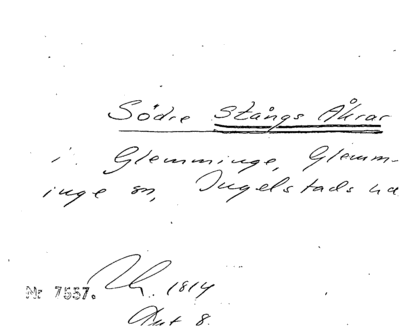 Södre Stångs Åkrar
i Glemminge, Glemm-
inge sn, Ingelstads hd
Nr 7557. 1814
Akt 8.